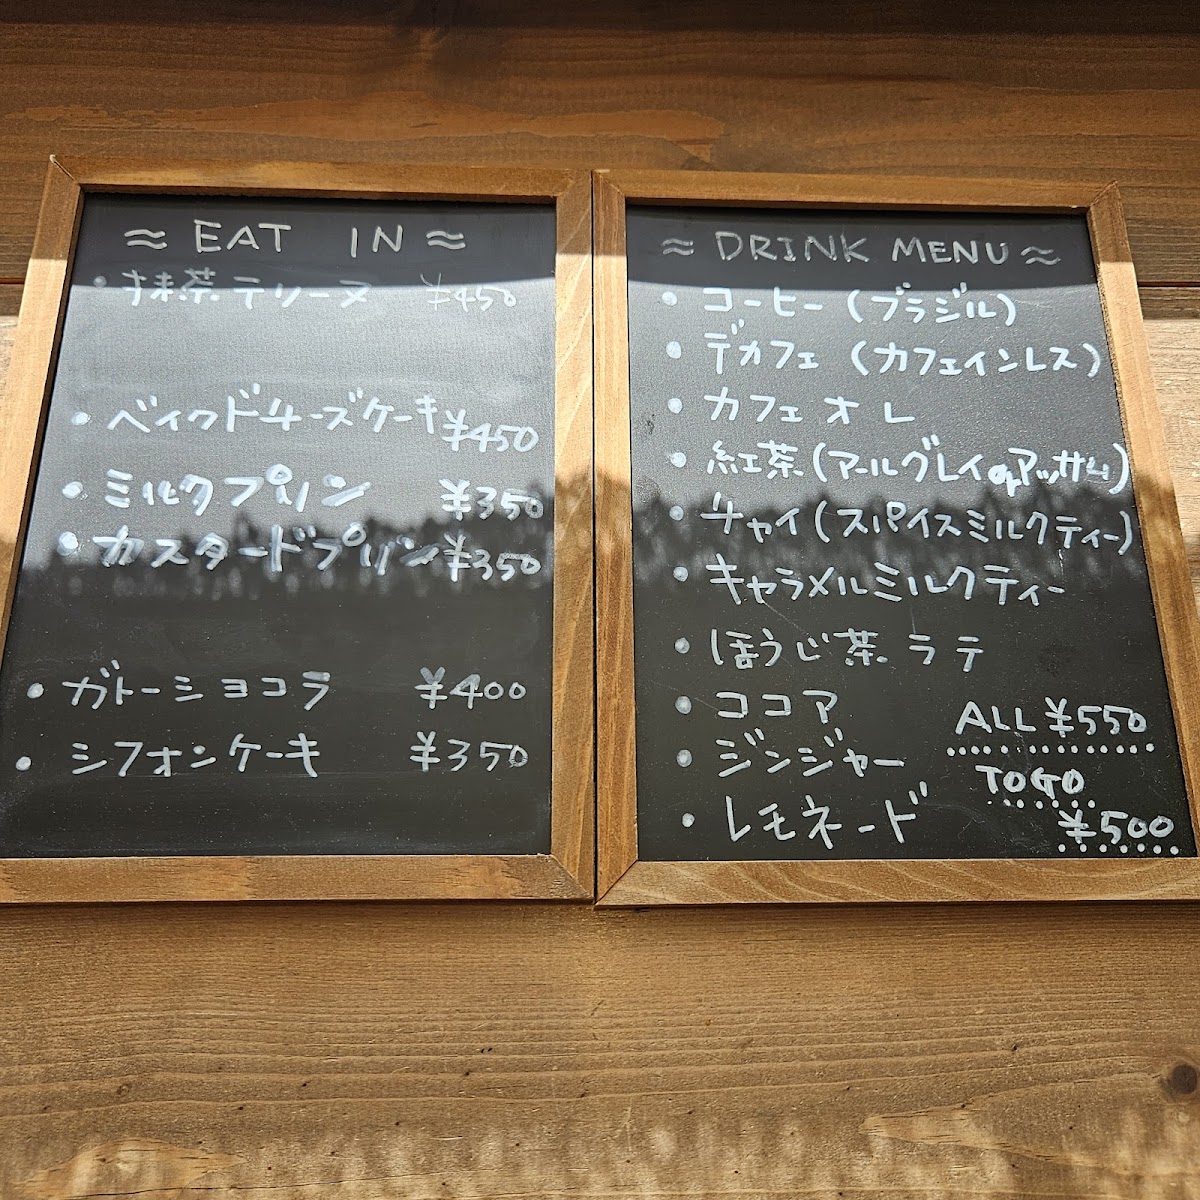 ≈ EAT IN ≈
・抹茶テリーヌ ¥450
・ベイクドチーズケーキ ¥450
・ミルクプリン ¥350
・カスタードプリン ¥350
・ガトーショコラ ¥400
・シフォンケーキ ¥350
≈ DRINK MENU ≈
・コーヒー(ブラジル)
・デカフェ(カフェインレス)
・カフェオレ
・紅茶(アールグレイorアッサム)
・チャイ(スパイスミルクティー)
・キャラメルミルクティー
・ほうじ茶ラテ
・ココア
・ジンジャー
・レモネード
ALL ¥550
TOGO
¥500